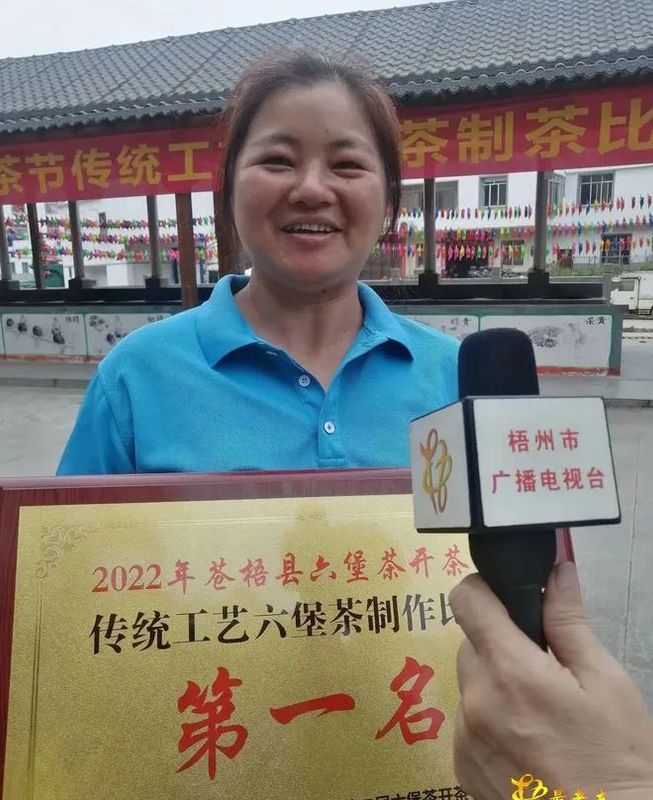 茶节传统工艺
茶制茶比
采青
梧州市
广播电视台
2022年苍梧县六堡茶开茶
传统工艺六堡茶制作比
第一名
六堡茶开茶